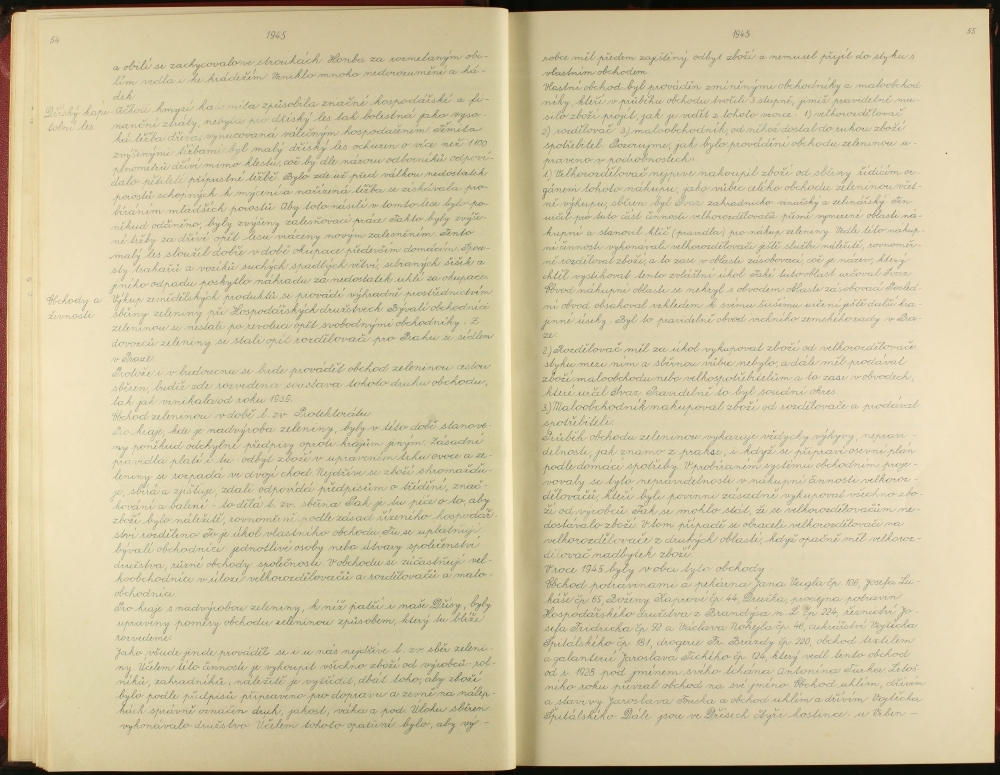 54
1945
a obilí se zachycovalo ve strouhách. Honba za rozmetaným obi-
lím vedla i ke krádežím. Vzniklo mnoho nedorozumění a há-
dek.
Dřísský kapi-
tolní les
Ačkoli hmyzí kalamita způsobila značné hospodářské a fi-
nanční ztráty, nebyla pro dřísský les tak bolestná jako vyso-
ká těžba dřeva, vynucovaná válečným hospodařením. Těmito
zvýšenými těžbami byl malý dřísský les ochuzen o více než 1100
plnometrů dříví mimo klestu, což by dle názoru odborníků odpoví-
dalo pětileté přípustné těžbě. Bylo zde už před válkou nedostatek
porostů schopných k mýcení a nařízená těžba se získávala pro-
bíráním mladších porostů. Aby toto násilí v tomto lese bylo po-
někud odčiněno, byly zvýšeny zalesňovací práce. Takto byly zvýše-
né těžby za dříví opět lesu vráceny novým zalesněním. Tento
malý les sloužil dobře v době okupace především domácím. Pro-
sty trakařů a vozíků suchých spadlých větví, sebraných šišek a
jiného odpadu poskytlo náhradu za nedostatek uhlí za okupace.
Obchody a
živnosti
Výkup zemědělských produktů se prováděl výhradně prostřednictvím
sběrny zeleniny při Hospodářských družstvech. Bývalí obchodníci
zeleninou se nestali po revoluci opět svobodnými obchodníky. Z
dovozců zeleniny se stali opět rozdělovači pro Prahu se sídlem
v Praze.
Protože i v budoucnu se bude provádět obchod zeleninou cestou
sběren, budiž zde rozvedena soustava tohoto druhu obchodu,
tak jak vznikala od roku 1939.
Obchod zeleninou v době t. zv. Protektorátu
Pro kraje, kde je nadvýroba zeleniny, byly v této době stanove-
ny poněkud odchylné předpisy oproti krajům jiným. Zásadní
pravidla platí i tu: odbyt zboží v upraveném trhu ovoce a ze-
leniny se rozpadá ve dvojí chod. Nejdříve se zboží shromažďu-
je, sbírá a zjišťuje, zdali odpovídá předpisům o třídění, znač-
kování a balení - to dělá t. zv. sběrna. Pak je tu péče o to, aby
zboží bylo náležitě, rovnoměrně podle zásad řízeného hospodář-
ství rozděleno. To je úkol vlastního obchodu. Tu se uplatňují
bývalí obchodníci, jednotlivé osoby nebo útvary společenství
družstva, různé obchody společnosti. V obchodu se zúčastňují vel-
koobchodníci v úloze velkorozdělovačů a rozdělovačů a malo-
obchodníci.
Pro kraje s nadvýrobou zeleniny, k níž patří i naše Dřísy, byly
upraveny poměry obchodu zeleninou způsobem, který tu blíže
rozvedeme:
Jako všude jinde prováděl se i u nás nejdříve t. zv. sběr zeleni-
ny. Účelem této činnosti je vykoupit všechno zboží od výrobců rol-
níků, zahradníků, náležitě je vytřídit, dbát toho, aby zboží
bylo podle předpisů připraveno pro dopravu a zevně na nálep-
kách správně označen druh, jakost, váha a pod. Úlohu sběren
vykonávalo družstvo. Účelem tohoto opatření bylo, aby vý-
1945
55
robce měl předem zajištěný odbyt zboží a nemusel přijít do styku s
vlastním obchodem.
Vlastní obchod byl prováděn zmíněnými obchodníky a maloobchod-
níky, kteří v průběhu obchodu tvořili 3 stupně, jimiž pravidelně mu-
silo zboží projít, jak je vidět z tohoto vzorce: 1) velkorozdělovač
2) rozdělovač 3) maloobchodník, od něhož dostal do rukou zboží
spotřebitel. Pozorujme, jak bylo provádění obchodu zeleninou u-
praveno v podrobnostech:
1) Velkorozdělovač nejprve nakoupil zboží od sběrny. Řídícím or-
gánem tohoto nákupu, jako vůbec celého obchodu zeleninou včet-
ně výkupu, sběren byl Svaz zahradnicko vinařský a zelinářský. Ten
určil pro tuto část činnosti velkorozdělovače přesně vymezené oblasti ná-
kupní a stanovil klíč (pravidla) pro nákup zeleniny. Vedle této nákup-
ní činnosti vykonával velkorozdělovač ještě službu nátržitě, rovnoměr-
ně rozděloval zboží, a to zase v oblasti zásobovací, což je název, který
chtěl vystihovat tento zvláštní úkol. Také tuto oblast určoval Svaz.
Obvod nákupní oblasti se nekryl s obvodem oblasti zásobovací. Posled-
ní obvod obsahoval vzhledem k svému širšímu určení ještě další kra-
jinné úseky. Byl to pravidelně obvod vrchního zemského rady v Pra-
ze.
2) Rozdělovač měl za úkol vykupovat zboží od velkorozdělovače
styku mezi ním a sběrnou vůbec nebylo, a dále měl prodávat
zboží maloobchodu nebo velkospotřebitelům, a to zase v obvodech,
které určil Svaz. Pravidelně to byl soudní okres.
3) Maloobchodník nakupoval zboží od rozdělovače a prodával
spotřebiteli.
Průběh obchodu zeleninou vykazuje vždycky výkyvy, nepravi-
delnosti, jak známo z prakse, i když se připraví osevní plán
podle domácí spotřeby. V probíraném systému obchodním proje-
vovaly se tyto nepravidelnosti v nákupní činnosti velkoroz-
dělovačů, kteří byli povinni zásadně vykupovat všechno zbo-
ží od výrobců. Pak se mohlo stát, že se velkorozdělovačům ne-
dostávalo zboží. V tom případě se obraceli velkorozdělovači na
velkorozdělovače z druhých oblastí, když opačně měl velkoroz-
dělovač nadbytek zboží.
V roce 1945 byly v obci tyto obchody:
Obchod potravinami a pekárna Jana Veigla čp. 106, Josefa Lu-
káše čp. 65, Boženy Kaprové čp. 44, Dřevíka, prodejna potravin
Hospodářského družstva z Brandýsa n. L. čp. 224, řeznictví Jo-
sefa Fridricha čp. 72 a Václava Nohejla čp. 46, cukrářství Vojtěcha
Špitálského čp. 181, drogerie Fr. Brázdy čp. 220, obchod textilem
a galanterií Jaroslava Tichého čp. 124, který vedl tento obchod
od r. 1928 pod jménem svého tchána Antonína Turka. Letoš-
ního roku převzal obchod na své jméno. Obchod uhlím, dřívím
a stavivy Jaroslava Součka a obchod uhlím a dřívím Vojtěcha
Špitálského. Dále jsou ve Dřísech čtyři hostince: u Vrbin-